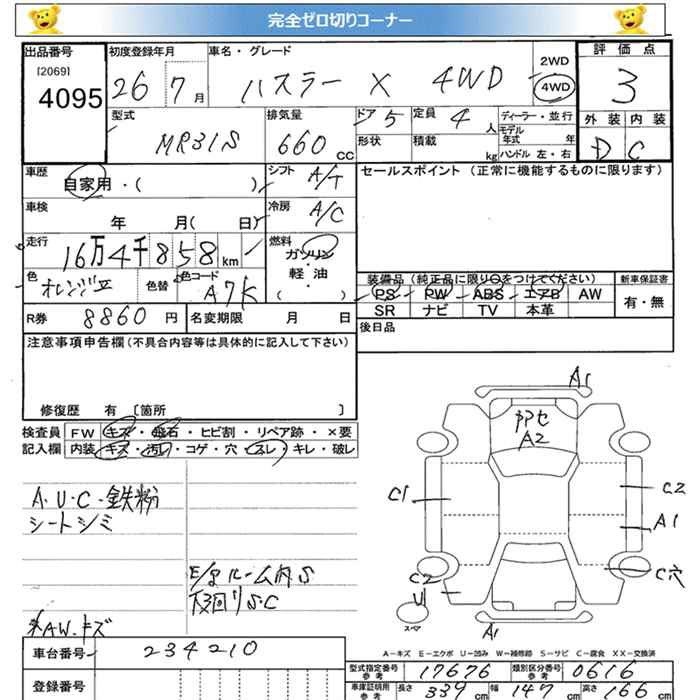 完全ゼロ切りコーナー
出品番号 初度登録年月 車名・グレード 2WD 評価点
[2069] 4095 26 7月 ハスラー X 4WD 4WD 3
型式 排気量 ドア 5 定員 4人 ディーラー・並行 外装 内装
MR31S 660 cc 形状 積載 kg モデル年式 年 D C
ハンドル 左・右
車歴 自家用・( ) シフト A/T セールスポイント (正常に機能するものに限ります)
車検 年 月( 日) 冷房 A/C
走行 16万4千858km 燃料 ガソリン
軽油
( )
色 オレンジII 色替 色コード A7K
装備品 (純正品に限り○をつけてください) 新車保証書
PS PW ABS エアB AW 有・無
SR ナビ TV 本革
R券 8860円 名変期限 月 日
後日品
注意事項申告欄 (不具合内容等は具体的に記入して下さい)
修復歴 有 [箇所 ]
検査員 FW キズ・飛石・ヒビ割・リペア跡・×要
記入欄 内装 キズ・汚レ・コゲ・穴・スレ・キレ・破レ
A1
A2
C1
C2
A1
C2
U1
C穴
A1
スペア
A・U・C・鉄粉
シートシミ
E/gルーム内S
下回りS・C
※AW.キズ
A-キズ E-エクボ U-凹み W-補修跡 S-サビ C-腐食 XX-交換済
車台番号 234210
登録番号
型式指定番号 参考 17676 類別区分番号 参考 0616
車庫証明用 参考 長さ 339cm 幅 147cm 高さ 166cm